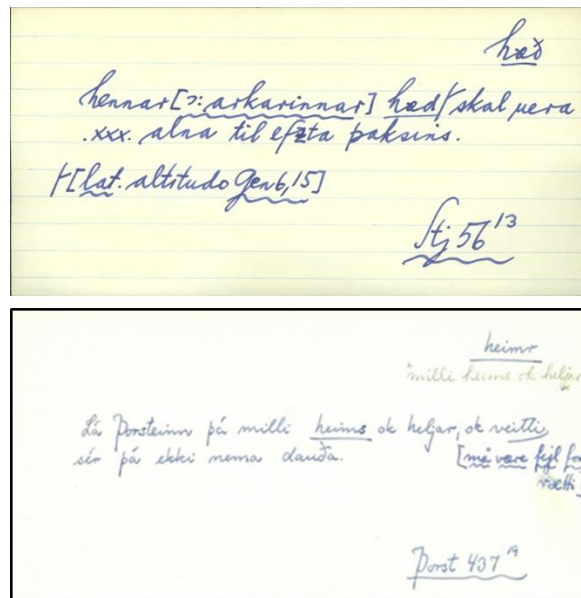 hæð
hennar [ɔ: arkarinnar] hæd/ skal vera
.xxx. alna til efzta þaksins.
/-[lat. altitudo Gen 6,15]
Stj 56¹³
heimr
milli heims ok heljar
Lá Þorsteinn þá milli heims ok heljar, ok veitti
sér þá ekki nema dauða. [må være fejl for
vætti]
Þorst 437¹⁹